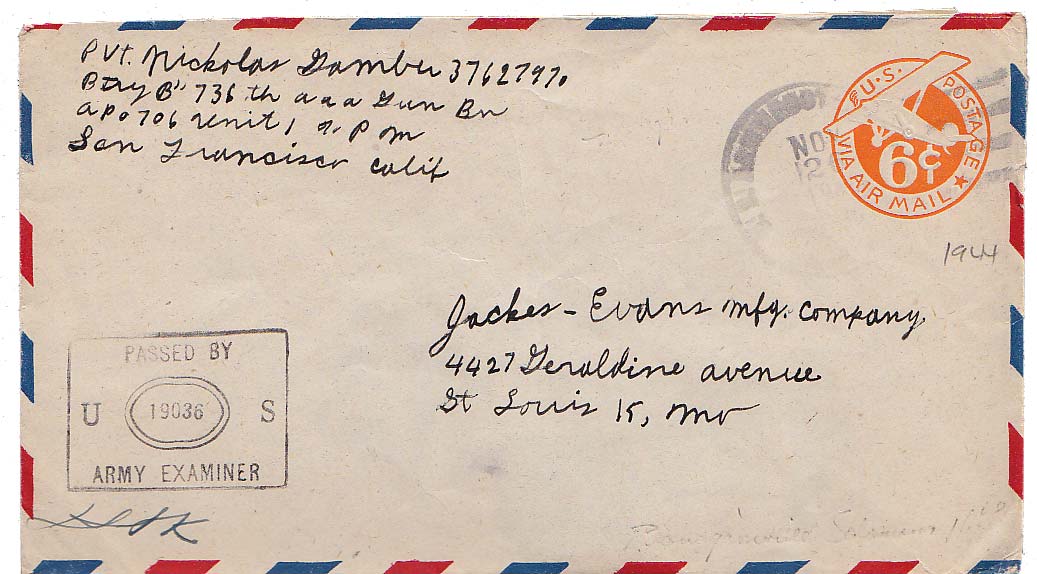 Pvt. Nickolas Gambu 37627970
Btry B" 736 th aaa Gun Bn
apo 706 Unit 1 % P m
San Francisco Calif
U.S. POSTAGE
VIA AIR MAIL
6¢
NO
1944
Jackes - Evans mfg. Company
4427 Geraldine avenue
St Louis 15, Mo
PASSED BY
U 19036 S
ARMY EXAMINER